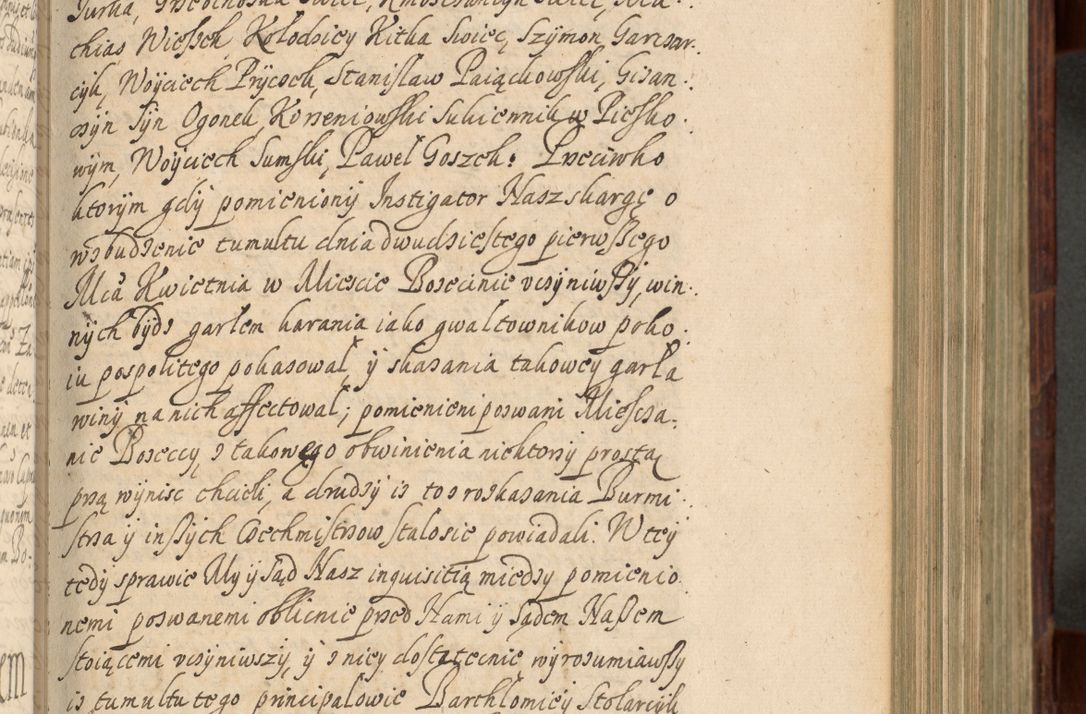 chias Wiessek Kołodziey Kitka Swiec, Szÿmon Garczar:
cÿk, Woÿciech Prÿczek, Stanisław Paiączkowski, Gizan:
czÿn Sÿn Ogonek, Korzeniowski Sukiennik w Piesko:
wÿm, Woÿciech Sumski, Paweł Goszek. Przeciwko
ktorÿm gdÿ pomienionÿ Instigator Nasz skargę o
wzbudzenie tumultu dnia dwudziestego pierwszego
Mca Kwietnia w Miescie Bozecinie vczÿniwszÿ, win:
nÿch bÿdz garłem karania iako gwałtownikow poko:
iu pospolitego pokazował, ÿ skazania takowey garła
winÿ na nich affectował; pomienieni pozwani Miescza:
nie Bozeccÿ z takowego obwinienia niektorzÿ prostą
przą wÿnisc chcieli, a drudzÿ iz to z roskazania Burmi:
strza ÿ inszÿch Cechmistrzow stałosie powiadali. W teÿ
tedÿ sprawie Mÿ ÿ Sąd Nasz inquisitią międzÿ pomienio:
nemi pozwanemi oblicznie przed Nami ÿ Sądem Naszem
stoiącemi vczÿniwszÿ, ÿ z nieÿ dostatecznie wÿrozumiawszÿ
iz tumultu tego principałowie Barthłomieÿ Stolarczÿk